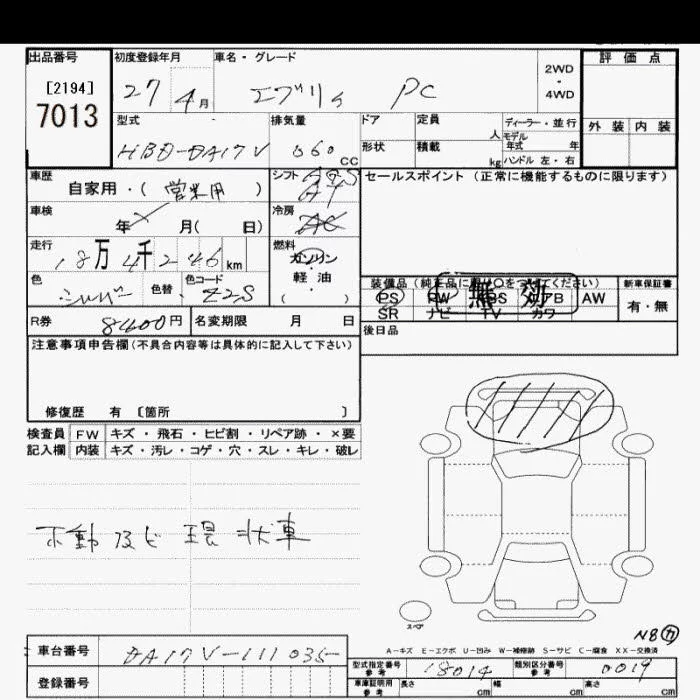 出品番号 初度登録年月 車名・グレード 評価点
[2194] 7013 27 4月 エブリィ PC 2WD・4WD
外装 内装
型式 排気量 ドア 定員 人 ディーラー・並行
モデル年式 年
HBD-DA17V 060 CC 形状 積載 kg ハンドル 左・右
車歴 シフト セールスポイント(正常に機能するものに限ります)
自家用・(営業用) AT
車検 冷房
年 月( 日) AC
走行 燃料
18万4千246km ガソリン・軽油
( )
色 色替 色コード 装備品 新車保証書
シルバー Z2S PS PW AW 有・無
無効
SR ナビ TV カワ
R券 8400円 名変期限 月 日 後日品
注意事項申告欄(不具合内容等は具体的に記入して下さい)
修復歴 有 〔箇所 〕
検査員 FW キズ・飛石・ヒビ割・リペア跡・×要
記入欄 内装 キズ・汚レ・コゲ・穴・スレ・キレ・破レ
不動及ビ現状車
スペア
N8
A-キズ E-エクボ U-凹み W-補修跡 S-サビ C-腐食 XX-交換済
車台番号 DA17V-111035
型式指定番号 参考 18014 類別区分番号 参考 0019
登録番号 車庫証明用 参考 長さ cm 幅 cm 高さ cm